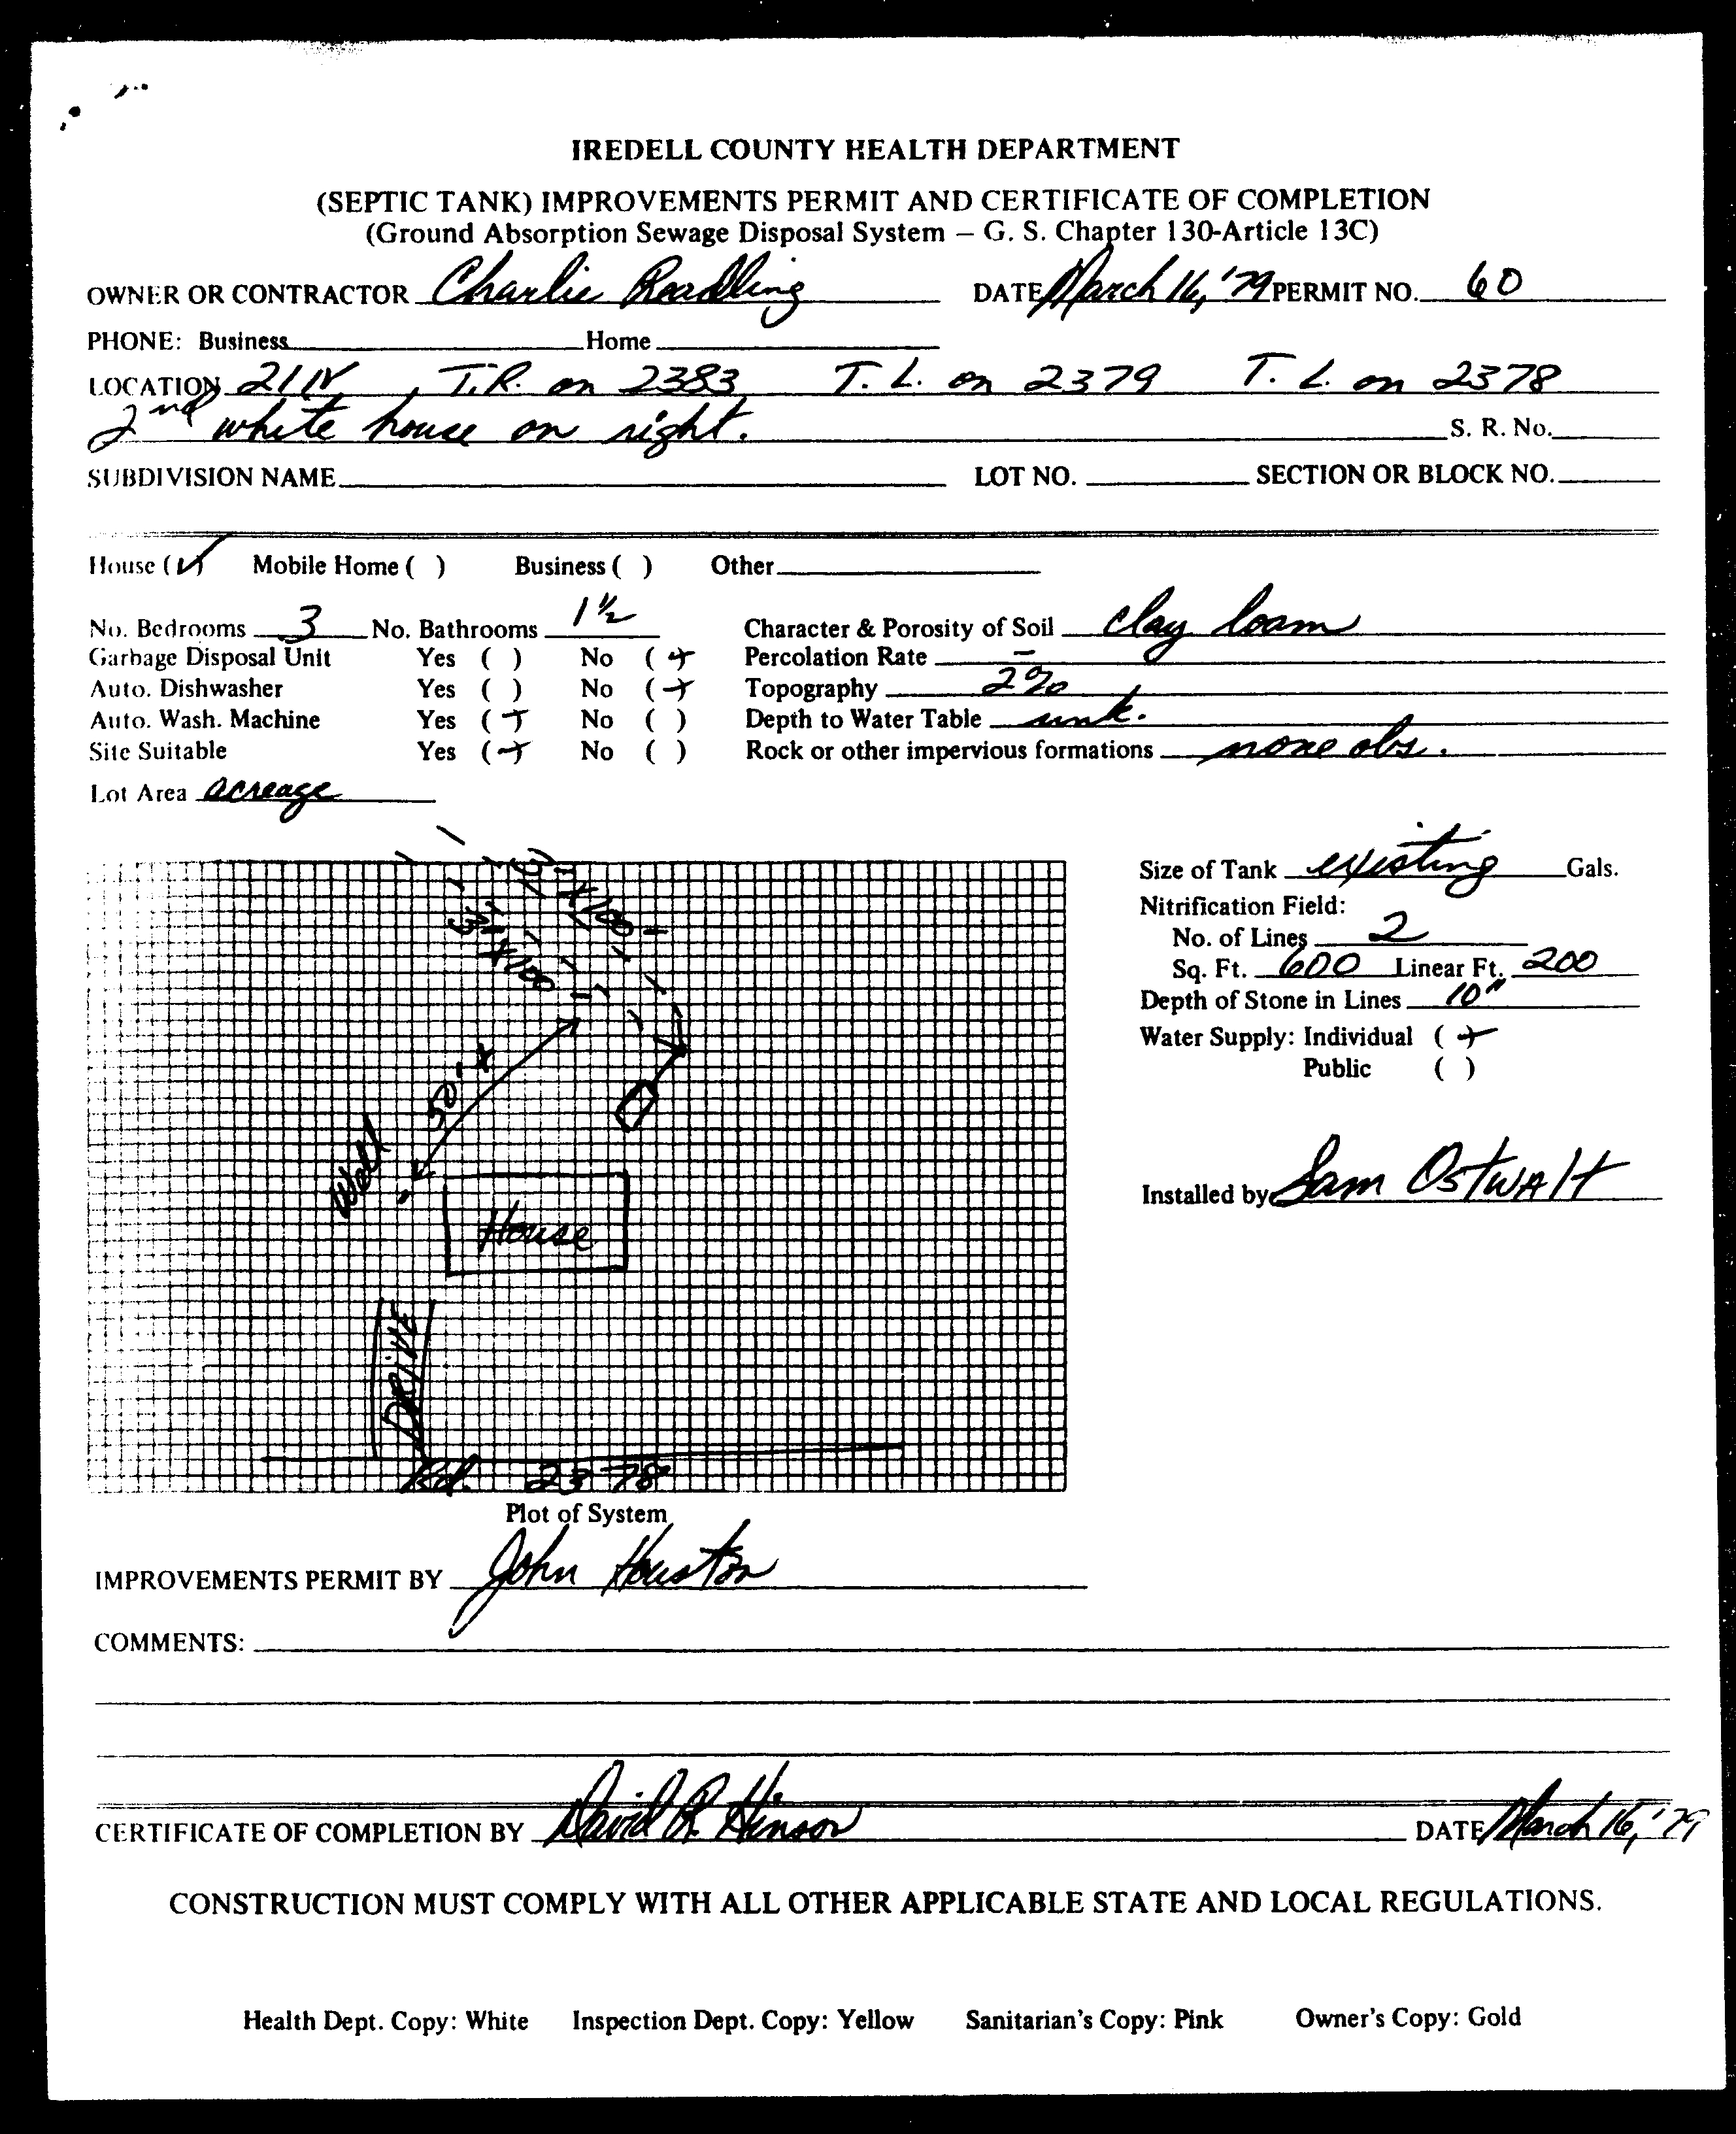 IREDELL COUNTY HEALTH DEPARTMENT
(SEPTIC TANK) IMPROVEMENTS PERMIT AND CERTIFICATE OF COMPLETION
(Ground Absorption Sewage Disposal System – G. S. Chapter 130-Article 13C)
OWNER OR CONTRACTOR Charlie Readling DATE March 16, '79 PERMIT NO. 60
PHONE: Business Home
LOCATION 21 N, T.R. on 2383 T. L. on 2379 T. L. on 2378
2nd white house on right. S. R. No.
SUBDIVISION NAME LOT NO. SECTION OR BLOCK NO.
House (✓) Mobile Home ( ) Business ( ) Other
No. Bedrooms 3 No. Bathrooms 1 1/2 Character & Porosity of Soil clay loam
Garbage Disposal Unit Yes ( ) No (+) Percolation Rate –
Auto. Dishwasher Yes ( ) No (+) Topography 2%
Auto. Wash. Machine Yes (+) No ( ) Depth to Water Table unk.
Site Suitable Yes (+) No ( ) Rock or other impervious formations none obs.
Lot Area acreage
Size of Tank existing Gals.
Nitrification Field:
No. of Lines 2
Sq. Ft. 600 Linear Ft. 200
Depth of Stone in Lines 10"
Water Supply: Individual (+)
Public ( )
Installed by Sam Ostwalt
3'x100'
3'x100'
50'+
Well
House
DRIVE
Rd. 2378
Plot of System
IMPROVEMENTS PERMIT BY John Houston
COMMENTS:
CERTIFICATE OF COMPLETION BY David R. Hinson DATE March 16, '79
CONSTRUCTION MUST COMPLY WITH ALL OTHER APPLICABLE STATE AND LOCAL REGULATIONS.
Health Dept. Copy: White Inspection Dept. Copy: Yellow Sanitarian's Copy: Pink Owner's Copy: Gold